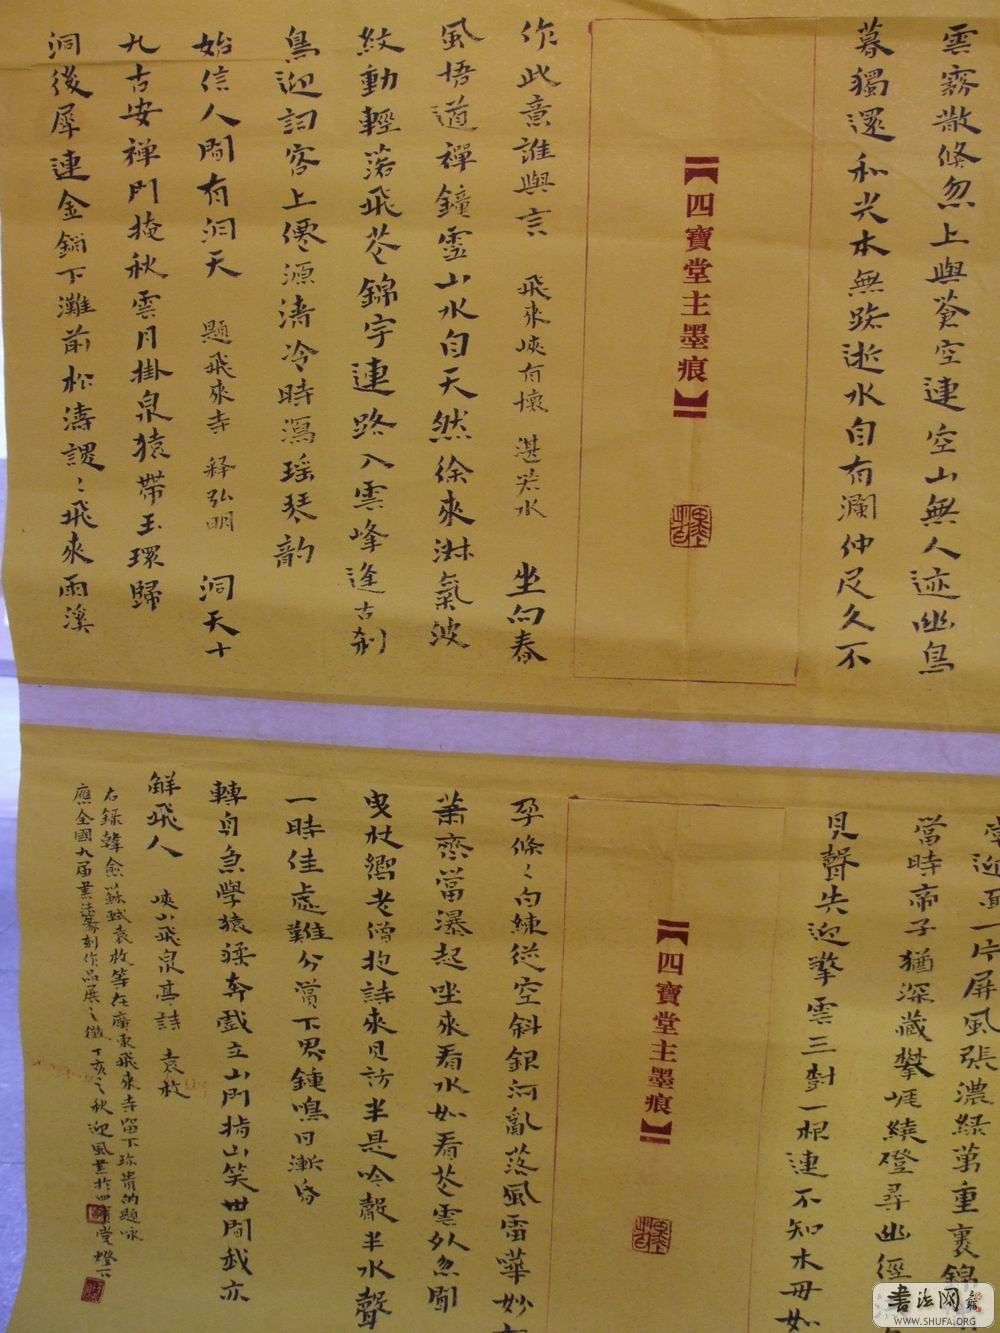 雲霧散倏忽上與蒼空連空山無人迹幽鳥
暮獨還和光本無跡逝水自有瀾仲尼久不
【四寶堂主墨痕】
作此意誰與言 飛來峽有懷 湛若水 坐向春
風悟道禪鐘靈山水自天然徐來淋氣波
紋動輕落飛花錦字連路入雲峰逢古刹
鳥迎詞客上僊源濤冷時瀉瑤琴韵
始信人間有洞天 題飛來寺 释弘明 洞天十
九古安禪門掩秋雲月掛泉猿帶玉環歸
洞後犀連金鎖下灘前松濤謖謖飛來雨溪
迎面一片屏風張濃綠萬重裹錦
當時帝子猶深藏攀崖繞磴尋幽徑
見聲先迎拏雲三對一根連不知木毋如
【四寶堂主墨痕】
孕條條白練從空斜銀河亂落風雷嘩妙
葉齋當瀑起坐來看水如看花雲外忽聞
曳杖響老僧抱詩來見訪半是吟聲半水聲
一時佳處難分賞下界鍾鳴日漸昏
轉身急學猿猱奔戲立山門揖山笑世間我亦
鮮飛人 峽山飛泉亭詩 袁枚
右錄韓愈蘇軾袁枚等在廣東飛來寺留下珍貴的題咏
應全國九届書法篆刻作品展之徵丁亥之秋迎風書於四寶堂燈下
书法网
WWW.SHUFA.ORG